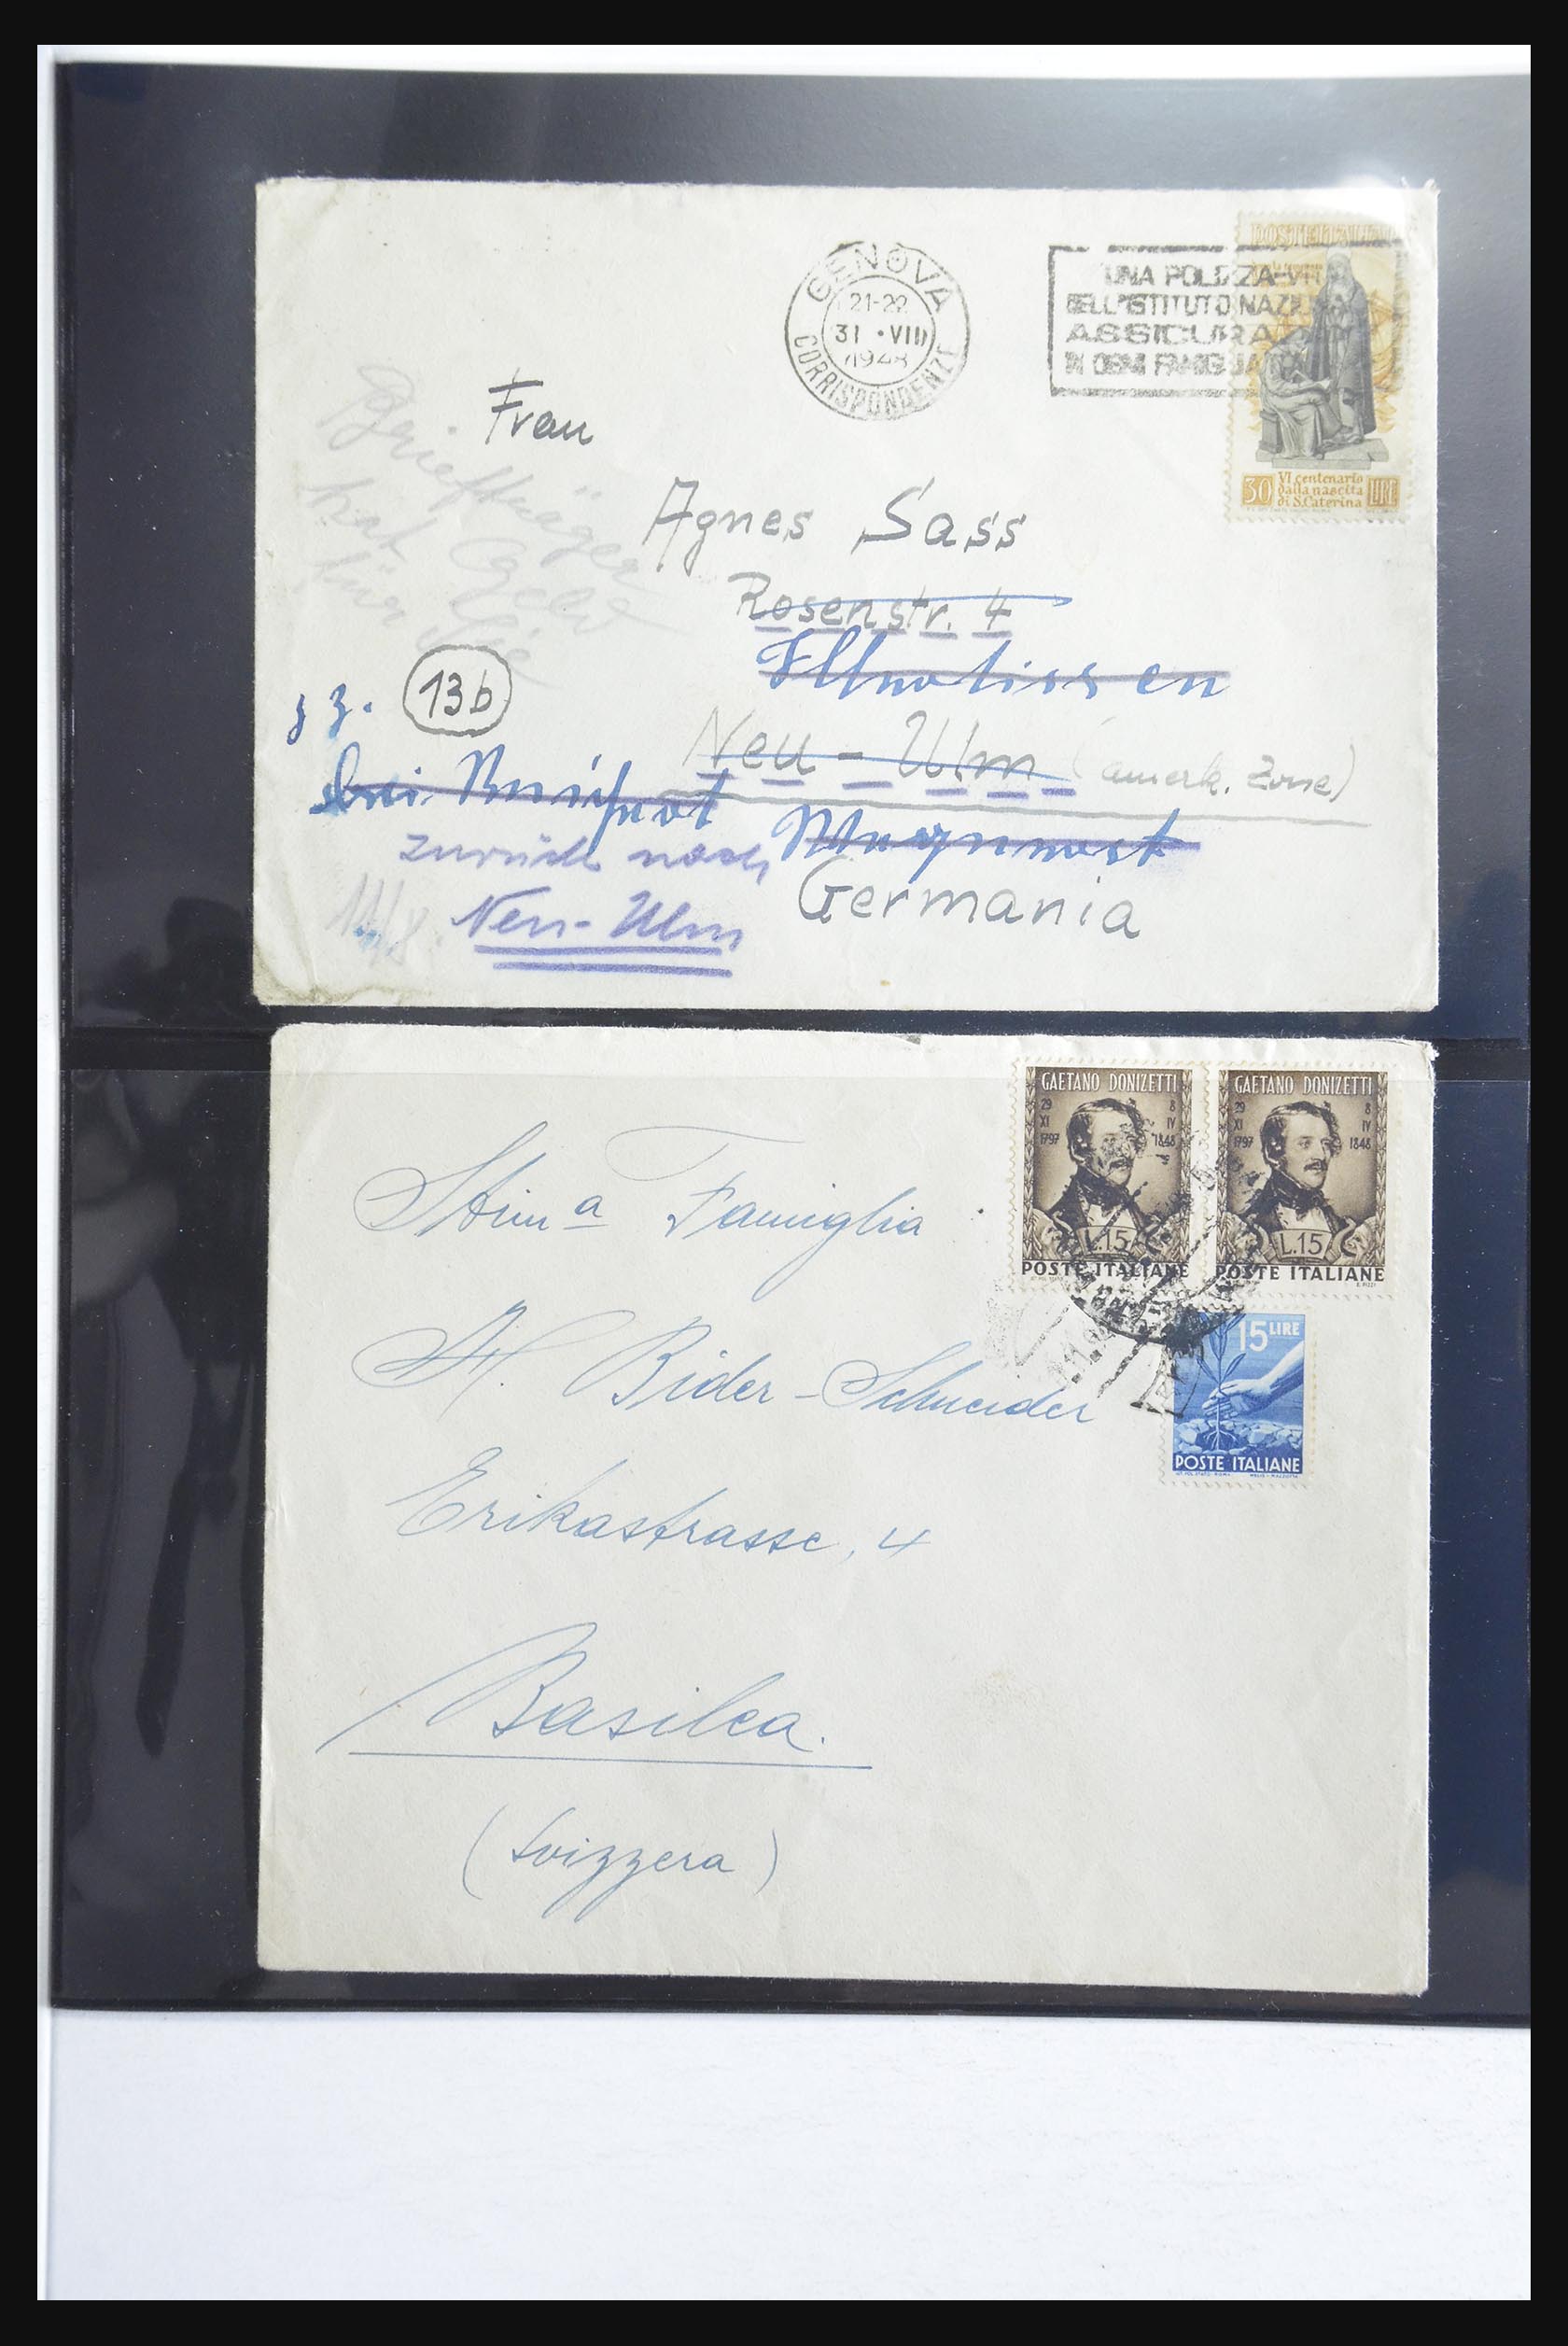 GENOVA
21-22
31 · VIII
1948
CORRISPONDENZE
UNA POLIZZA VI
DELL'ISTITUTO NAZI
ASSICURA
IN OGNI FAMIGLIA
POSTE ITALIANE
30 VI centenario
dalla nascita
di S. Caterina LIRE
Frau
Agnes Sass
Rosenstr. 4
Briefträger
hat Geld
für Sie
z. Z.
13b
Neu-Ulm (amerk. Zone)
zurück nach
Neu-Ulm
Germania
GAETANO DONIZETTI
29 XI 1797
8 IV 1848
L.15
POSTE ITALIANE
GAETANO DONIZETTI
29 XI 1797
8 IV 1848
L.15
POSTE ITALIANE
15 LIRE
POSTE ITALIANE
Stim a Famiglia
A. Bider-Schneider
Erikastrasse, 4
Basilea.
(Svizzera)